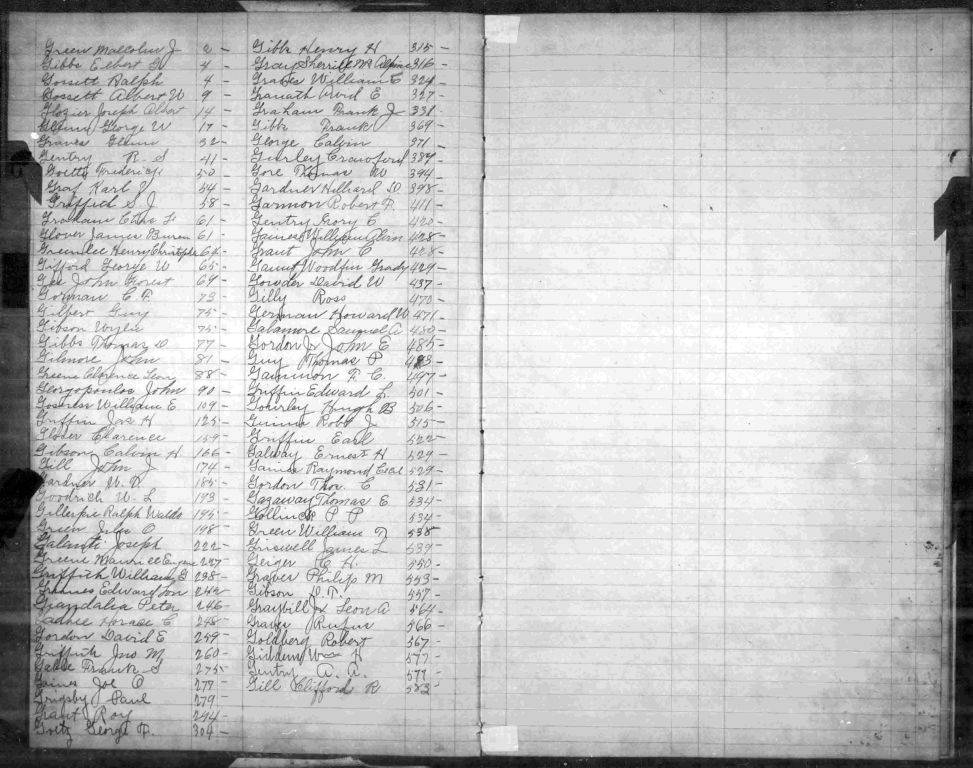 Green Malcolm J 2 –
Gibbs Elbert 4 –
Gossett Ralph 4 –
Gossett Albert W 9 –
Glozier Joseph Albert 14 –
Glenn George W 17 –
Graves Glenn 32 –
Gentry R. S 41 –
Goette Frederick 50 –
Graf Karl 54 –
Griffith S J 58 –
Graham 61 –
Glover James 61 –
Greenlee Henry Christopher 64 –
Gifford George W 65 –
Gee John Forest 69 –
Gorman C. P. 73 –
Gilpert Guy 75 –
Gibson Wylie 75 –
Gibbs Thomas D 77 –
Gilmore John 81 –
Greene Clarence Leon 88 –
Georgopoulos John 90 –
William E 109 –
Griffin Jas H 125 –
Glover Clarence 159 –
Gibson Calvin H 166 –
Gill John J 174 –
Gardner W. D 185 –
Goodrich W. L 193 –
Gillespie Ralph Waldo 195 –
Green O 198 –
Galanti Joseph 222 –
Greene Maurice Eugene 227 –
Griffith William 238 –
Edward 242 –
Grandalia Peter 246 –
Horace C 248 –
Gordon David E 259 –
Griffith Jno M 260 –
Gable Frank S 275 –
Gaines Joe O 277 –
Grigsby Paul 279 –
Grant Roy 294 –
Goetz George 304 –
Gibbs Henry H 315 –
Gray Sherrill McAlpine 316 –
Graves William E 324 –
Granath Arvid E 327 –
Graham Frank J 331 –
Gibbs Frank 369 –
George Calvin 371 –
Gurley Crawford 387 –
Gore Thomas W 394 –
Gardner Hilliard D 398 –
Garmon Robert F. 411 –
Gentry E. 420 –
Gaines William 428 –
Grant John C 428 –
Gaunt Woodfin Grady 429 –
Gowder David W 437 –
Gilly Ross 470 –
German Howard W 471 –
Samuel A 480 –
Gordon Jr John E 485 –
Guy Thomas P 493 –
Gammon F. C 497 –
Griffin Edward L. 501 –
Gourley Hugh B 506 –
Gunn Robt J. 515 –
Griffin Earl 522 –
Galway Ernest H 529 –
Gaines Raymond Cecil 529 –
Gordon Thos. C 531 –
Gazaway Thomas E 534 –
P P 534 –
Green William 538
Griswell James L 539 –
Geiger H. H. 550 –
Graves Philip M 553 –
Gibson D. T. 557 –
Graybill Jr Leon A 564 –
Rufus 566 –
Goldberg Robert 567 –
Giddens Wm H 577 –
Gentry A. A. 577 –
Gill Clifford R 583 –